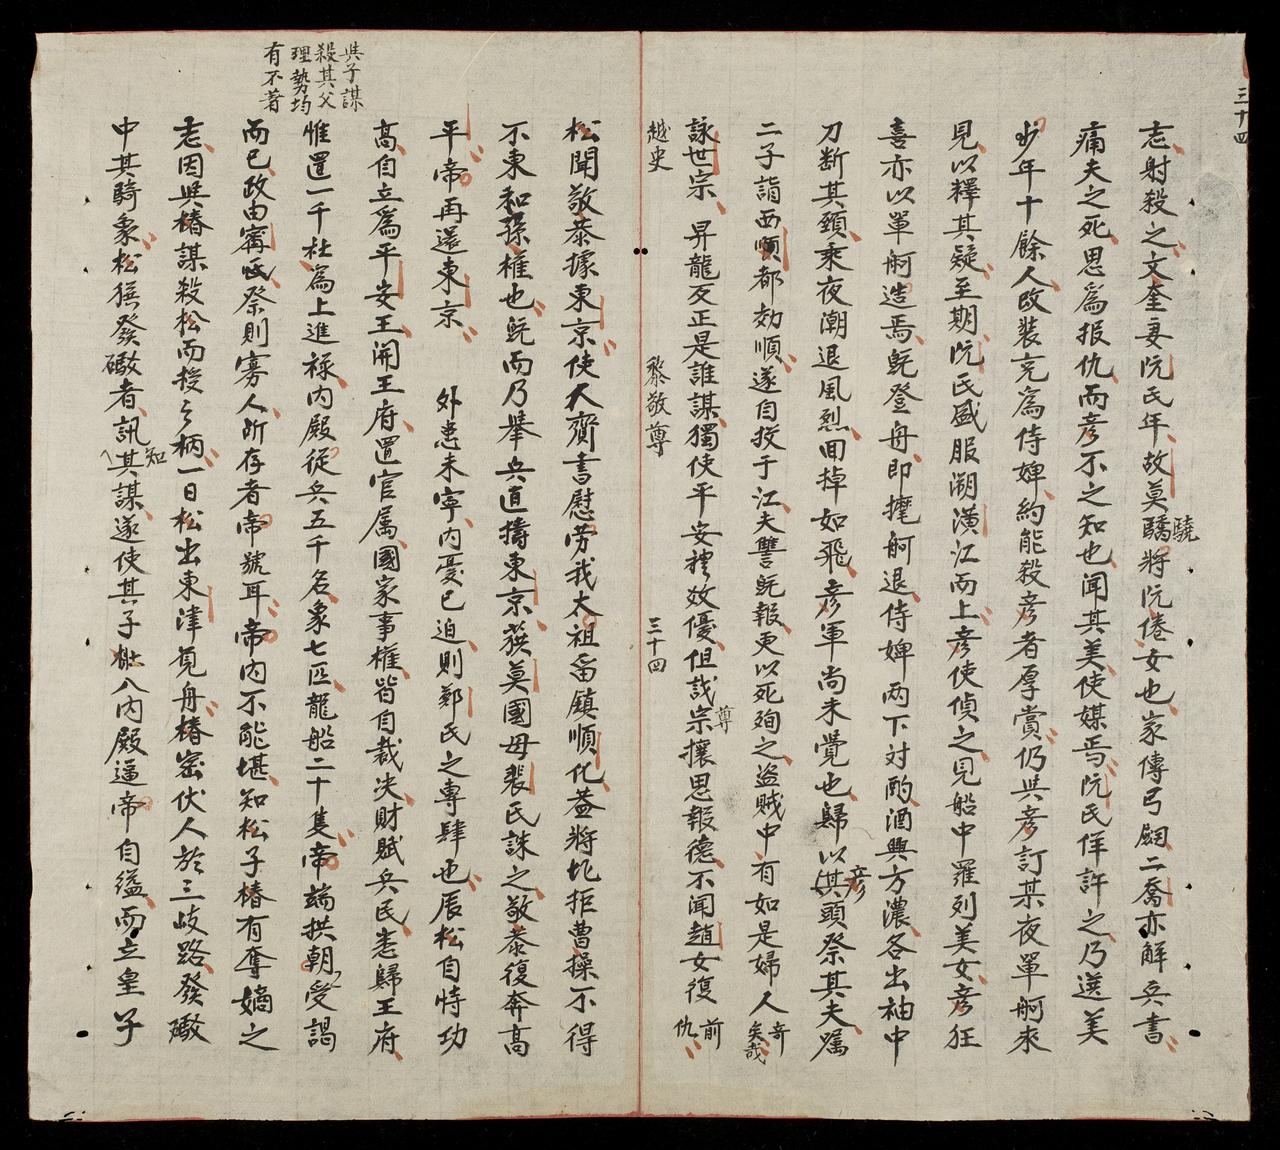 三十四
志射殺之文奎妻阮氏年故莫驕將阮倦女也家傳弓劔二喬亦解兵書
驍
痛夫之死思爲报仇而彦不之知也闻其美使媒焉阮氏佯許之乃選美
少年十餘人改装充為侍婢約能殺彦者厚賞仍與彦訂某夜單舸來
見以釋其疑至期阮氏盛服溯潢江而上彦使偵之見船中羅列美女彦狂
喜亦以單舸造焉既登舟即麾舸退侍婢两下対酌酒興方濃各出袖中
刀断其頸乘夜潮退風烈回掉如飛彦軍尚未覺也歸以其頭祭其夫嘱
彦
二子詣西順都効順遂自投于江夫讐既報更以死殉之盗賊中有如是婦人奇矣哉
詠世宗 昇龍反正是誰謀獨使平安禮效優但哉宗攘思報德不闻趙女復前仇
尊
越史 黎敬尊 三十四
松聞敬恭據東京使人齎書慰劳我太祖留鎮順化葢將北拒曹操不得
不東和孫權也既而乃舉兵直擣東京莫國母裴氏誅之敬恭復奔高
平帝再還東京 外患未寧内憂已迫則鄭氏之專肆也辰松自恃功
高自立爲平安王開王府置官属國家事權皆自裁决財賦兵民悉歸王府
惟置一千社為上進禄内殿從兵五千名象七匹龍船二十隻帝端拱朝受謁
而已政由寗氏祭則寡人所存者帝號耳帝内不能堪知松子椿有奪嫡之
志因與椿謀殺松而授之柄一日松出東津覓舟椿密伏人於三歧路發礮
中其騎象松獲發礮者訊其謀遂使其子入内殿逼帝自縊而立皇子
知
與子謀
殺其父
理勢均
有不著